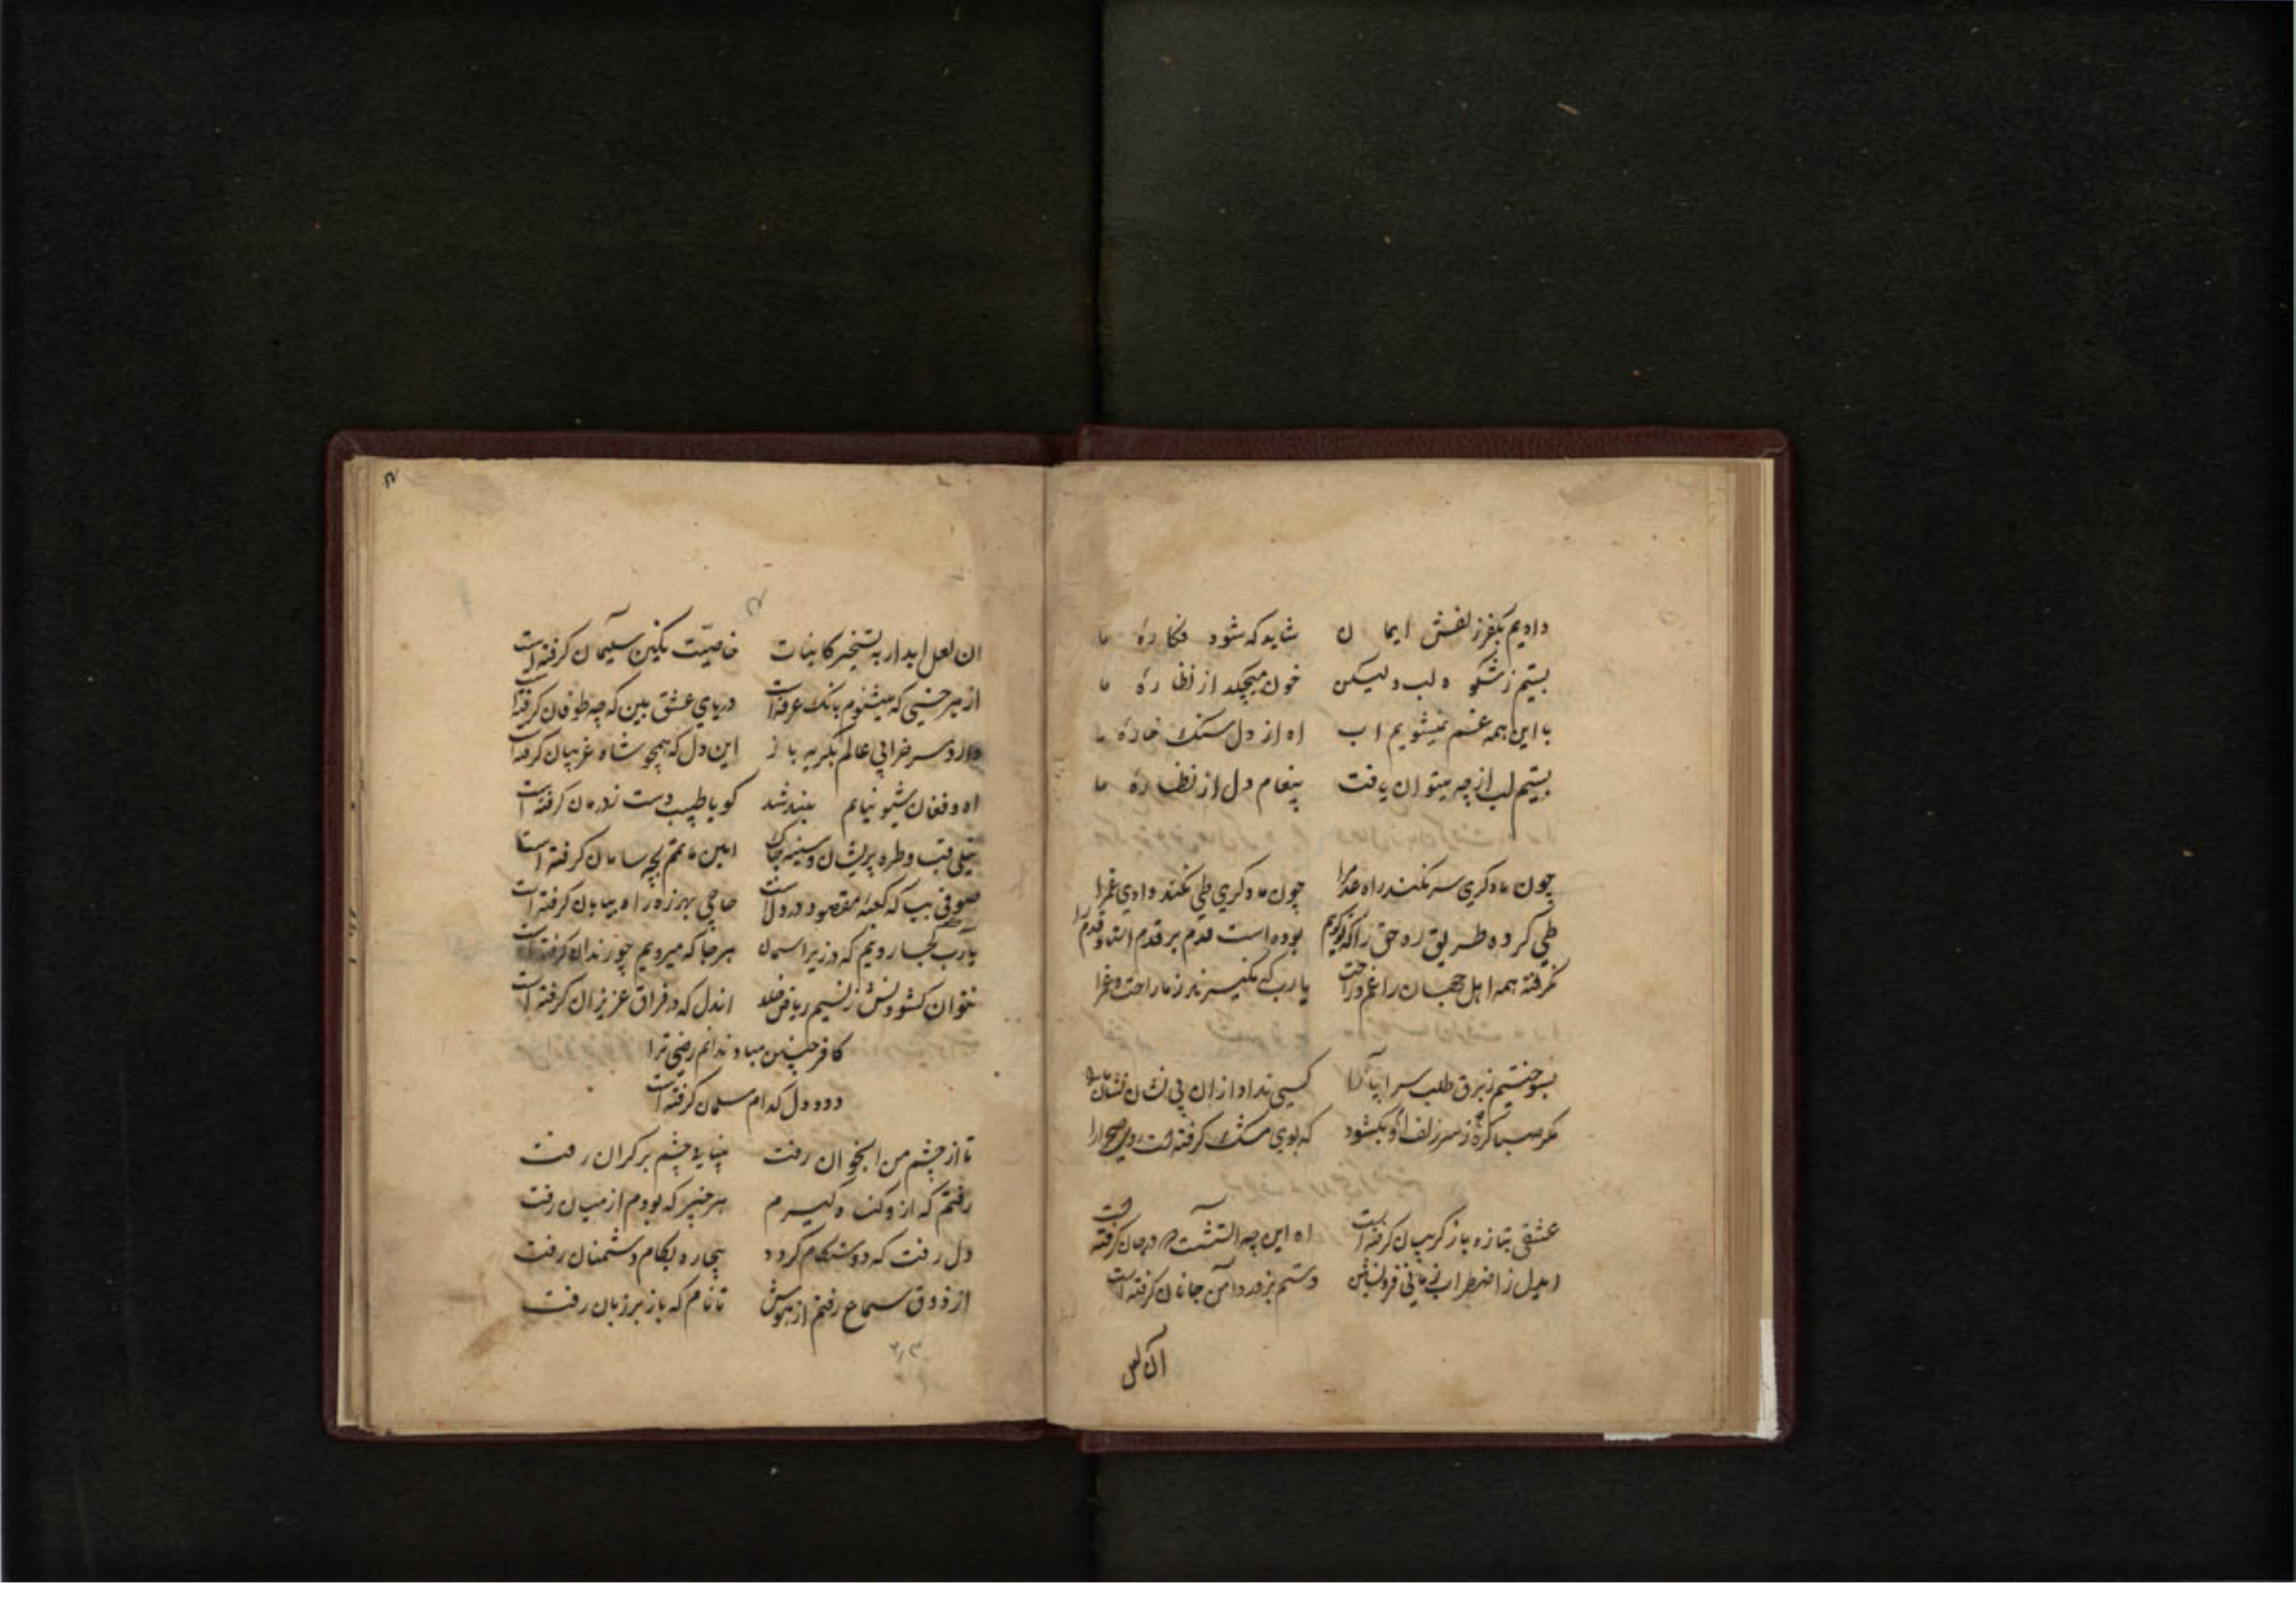 دادیم بکفر زلفش ایمان شاید که شود فکاره ما
بستیم ز شکوه لب ولیکن خون میچکد از نظاره ما
با این همه غم نمیشویم اب اه از دل سنک خاره ما
بستیم لب از چه میتوان یافت پیغام دل از نظاره ما
چون ما دکری سر نکند راه چون ما دکری طی نکند وادی
طی کرده طریق ره حق را بوده است قدم بر قدم
نکرفته همه اهل جهان را غم و راحت یا رب که نکیرند ز ما راحت و غم را
بسوختیم ز برق طلب سراپا را کسی نداد از ان بی نشان نشان
مکر صبا کره ز سر زلف او بکشود که بوی مشک کرفته است
عشقی بتازه باز کریبان کرفته است اه این چه اتشست که در جان کرفته است
ایدل ز اضطراب زمانی فرو نشین دستم بزور دامن جانان کرفته است
ان لعل
ان لعل ابدار به تسخیر کاینات خاصیت نکین سلیمان کرفته است
از هر خسی که میشنوم بانک غرقه است دریای عشق بین که چه طوفان کرفته است
دارد سر خرابی عالم بکریه باز این دل که همچو شاه غریبان کرفته است
اه و فغان شیونیانم بلند شد کویا طبیب دست ز درمان کرفته است
نیلی قبا و طره پریشان و سینه چاک ماتم بچه سامان کرفته است
صوفی بیا که کعبه مقصود در دل است حاجی بهرزه راه بیابان کرفته است
یا رب کجا رویم که در زیر اسمان هر جا که میرویم چو زندان کرفته است
نتوان کشودنش ز نسیم ریاض خلد اندل که در فراق عزیزان کرفته است
کافر چنین مباد ندانم رضی ترا
دود دل کدام مسلمان کرفته است
تا از چشم من رفت بینایی چشم رفت
رفتم که از و کناره کیرم هر چیز که بودم از میان رفت
دل رفت که دوستکام کردد بیچاره بکام دشمنان رفت
از ذوق سماع رفتم از هوش تا نام که باز بر زبان رفت